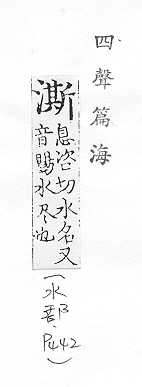 四聲篇海
澌
息咨切水名又
音賜水尽也
(水部.P442)